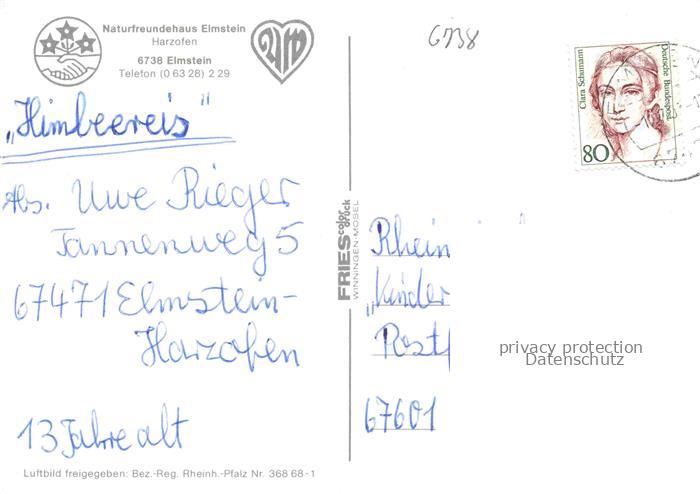 Naturfreundehaus Elmstein
Harzofen
6738 Elmstein
Telefon (0 63 28) 2 29
6738
Clara Schumann
Deutsche Bundespost
80
„Himbeereis"
Abs. Uwe Rieger
Tannenweg 5
67471 Elmstein-
Harzofen
13 Jahre alt
FRIES color druck
WINNINGEN-MOSEL
Rhein
„Kinder
Postf
67601
privacy protection
Datenschutz
Luftbild freigegeben: Bez.-Reg. Rheinh.-Pfalz Nr. 368 68-1